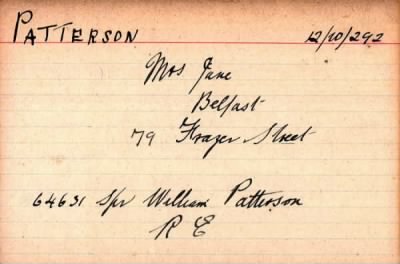 PATTERSON 12/10/292
Mrs Jane
Belfast
79 Frazer Street
64631 Spr William Patterson
R E